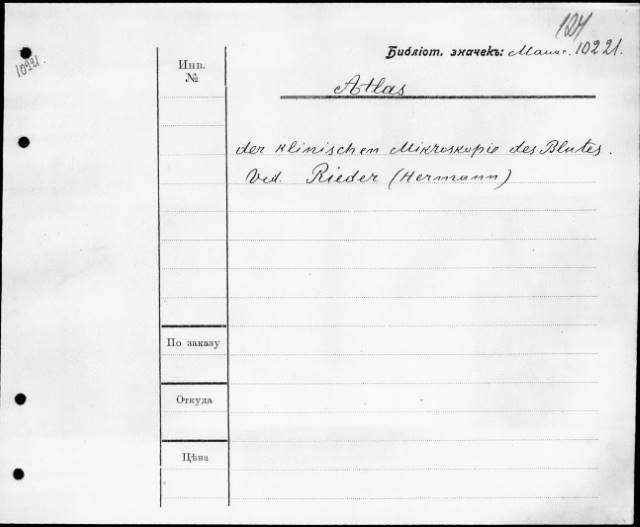 124
Библіот. значекъ: 10221.
10221.
Инв.
№
Atlas
der klinischen Mikroskopie des Blutes.
Vid. Rieder (Hermann)
По заказу
Откуда
Цѣна